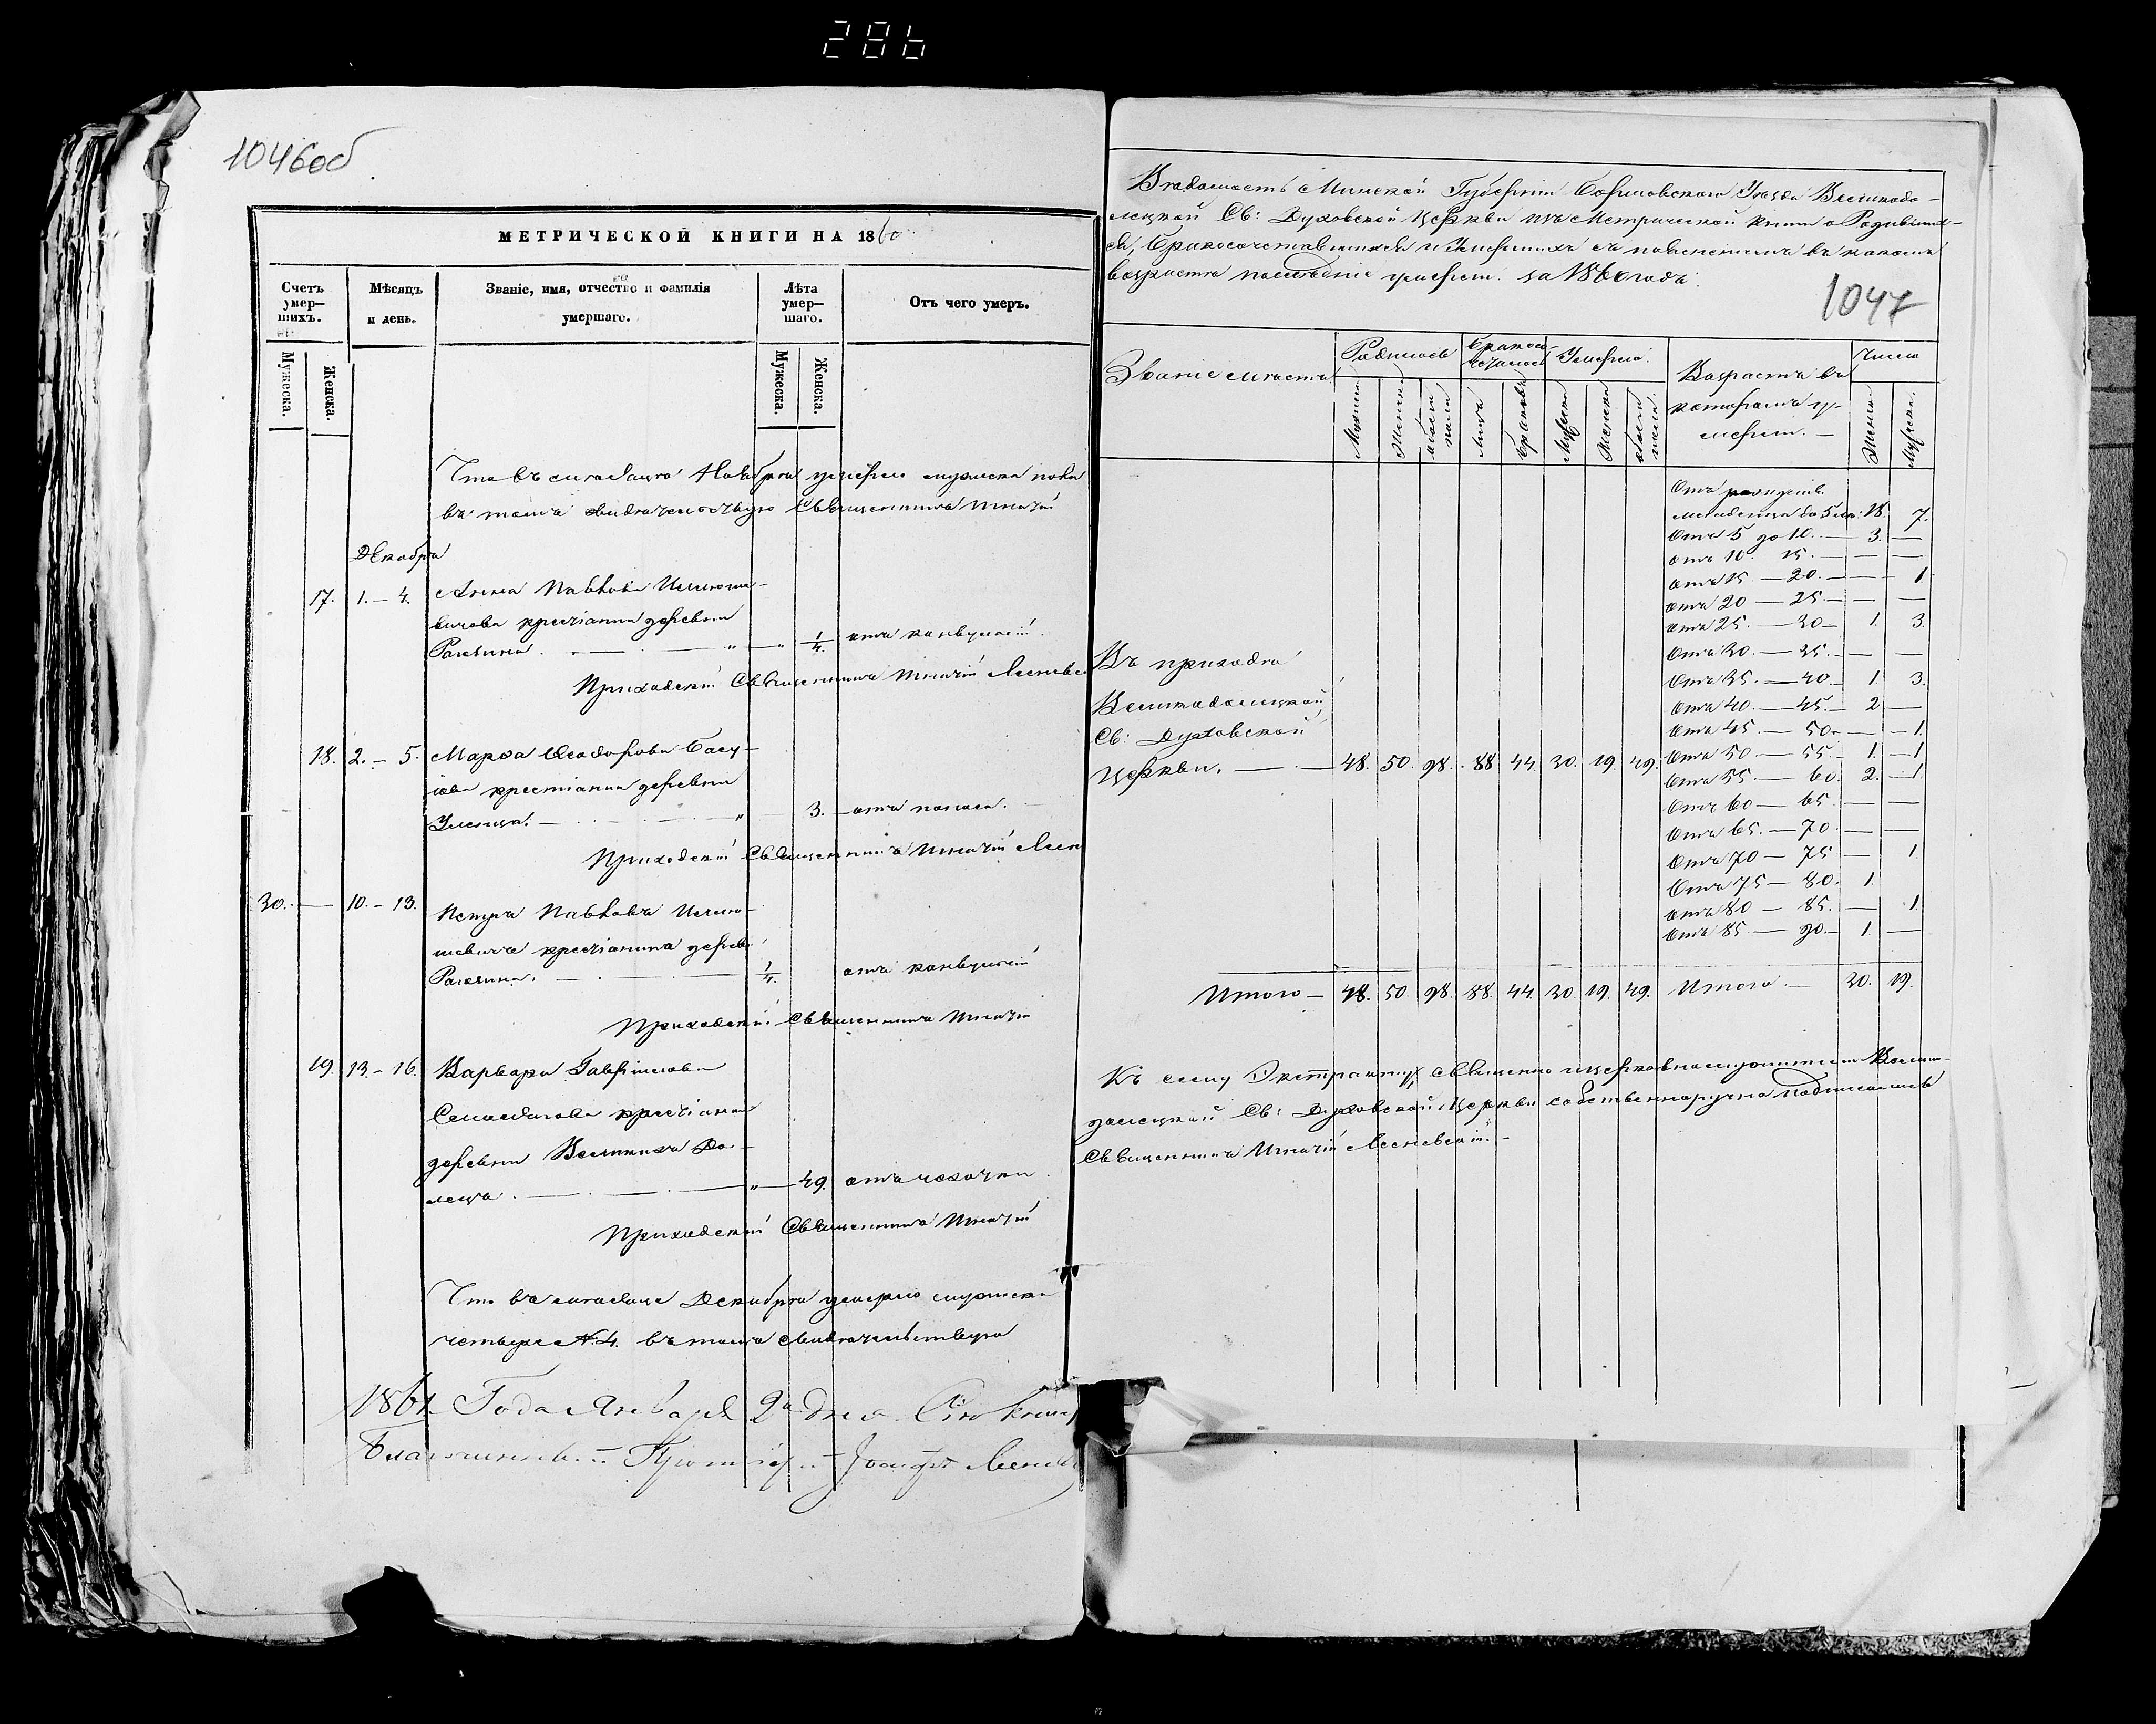 286
1046об
МЕТРИЧЕСКОЙ КНИГИ НА 1860
Счетъ умер—шихъ.
Мѣсяцъ и день.
Званіе, имя, отчество и фамилія умершаго.
Лѣта умер—шаго.
Отъ чего умеръ.
Мужеска.
Женска.
Мужеска.
Женска.
Что въ мѣсяцѣ Ноябрѣ умерло мужеска пола
въ томъ свидѣтельствую Священникъ Игнатій
Декабрь
17. 1. — 4. Анна Павлова Илию-
кресті­анка деревни
1/4. отъ конвульсій
Приходскій Священникъ Игнатій Леснев
18. 2. — 5. Марѳа Ѳеодорова
крестіанка деревни
3. отъ
Приходскій Священникъ Игнатій Лесн
30. — 10. — 13. Петръ Павловъ Илию-
шевичъ крестіанинъ дерев
1/4. отъ конвульсій
Приходскій Священникъ Игнатій
19. 13. — 16. Варвара Гаврилова
крестіанка
деревни Великихъ До-
лецъ. 49. отъ чахотки
Приходскій Священникъ Игнатій
Что въ мѣсяцѣ Декабрѣ умерло мужеска
четыре №4. въ томъ свидѣтельствую
1861 Года Января 2го дня. Сію книгу
Благочинный Протоіерей Іосифъ
Вѣдомость Минской Губерніи Борисовскаго Уѣзда Великодо-
лецкой Св: Духовской Церкви изъ Метрической книги о Родивших-
ся, Бракосочетавшихся и Умершихъ съ поясненіемъ въ какомъ
возрастѣ послѣдніе умерли. за 1860 годъ.
1047
Званіе мѣста
Родилось
Бракосо-четалось
Умерло.
Возрастъ въ которомъ у-мерли. —
Число
Мужеска
Женска
обоего пола
Лицъ
Браковъ
Мужеска
Женска
обоего пола.
Мужеска.
Отъ рожденія
младенца до 5 лѣт: 18. 7.
Отъ 5 до 10. — 3. —
отъ 10. 15. — — —
отъ 15 — 20. — — 1.
отъ 20 — 25. — — —
отъ 25. — 30 — 1. 3.
Отъ 30. — 35. — — —
Отъ 35. — 40. — 1. 3.
Отъ 40. — 45. — 2. —
Отъ 45. — 50. — — 1.
Отъ 50 — 55. — 1. — 1
Отъ 55. — 60. 2. — 1.
Отъ 60 — 65. — —
Отъ 65. — 70. — —
Отъ 70 — 75 — 1.
Отъ 75 — 80. 1.
отъ 80 — 85. — 1.
Отъ 85. — 90. — 1. —
Въ приходѣ
Великодолецкой
Св: Духовской
Церкви. — 48. 50. 98. 88. 44. 30. 19. 49.
Итого — 48. 50. 98. 88. 44. 30. 19. 49. Итого. — 30. 19.
Къ сему Экстракту священно и церковнослужители Велико-
долецкой Св: Духовской Церкви собственноручно подписались
Священникъ Игнатій Лесневскій. —